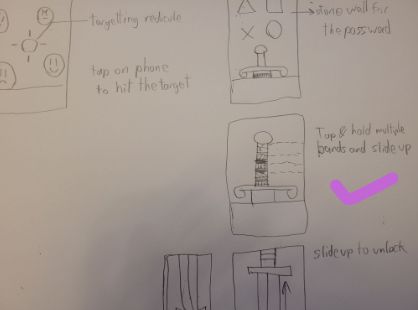 targetting redicule
tap on phone
to hit the target
stone wall for
the password
Tap & hold multiple
bands and slide up
slide up to unlock